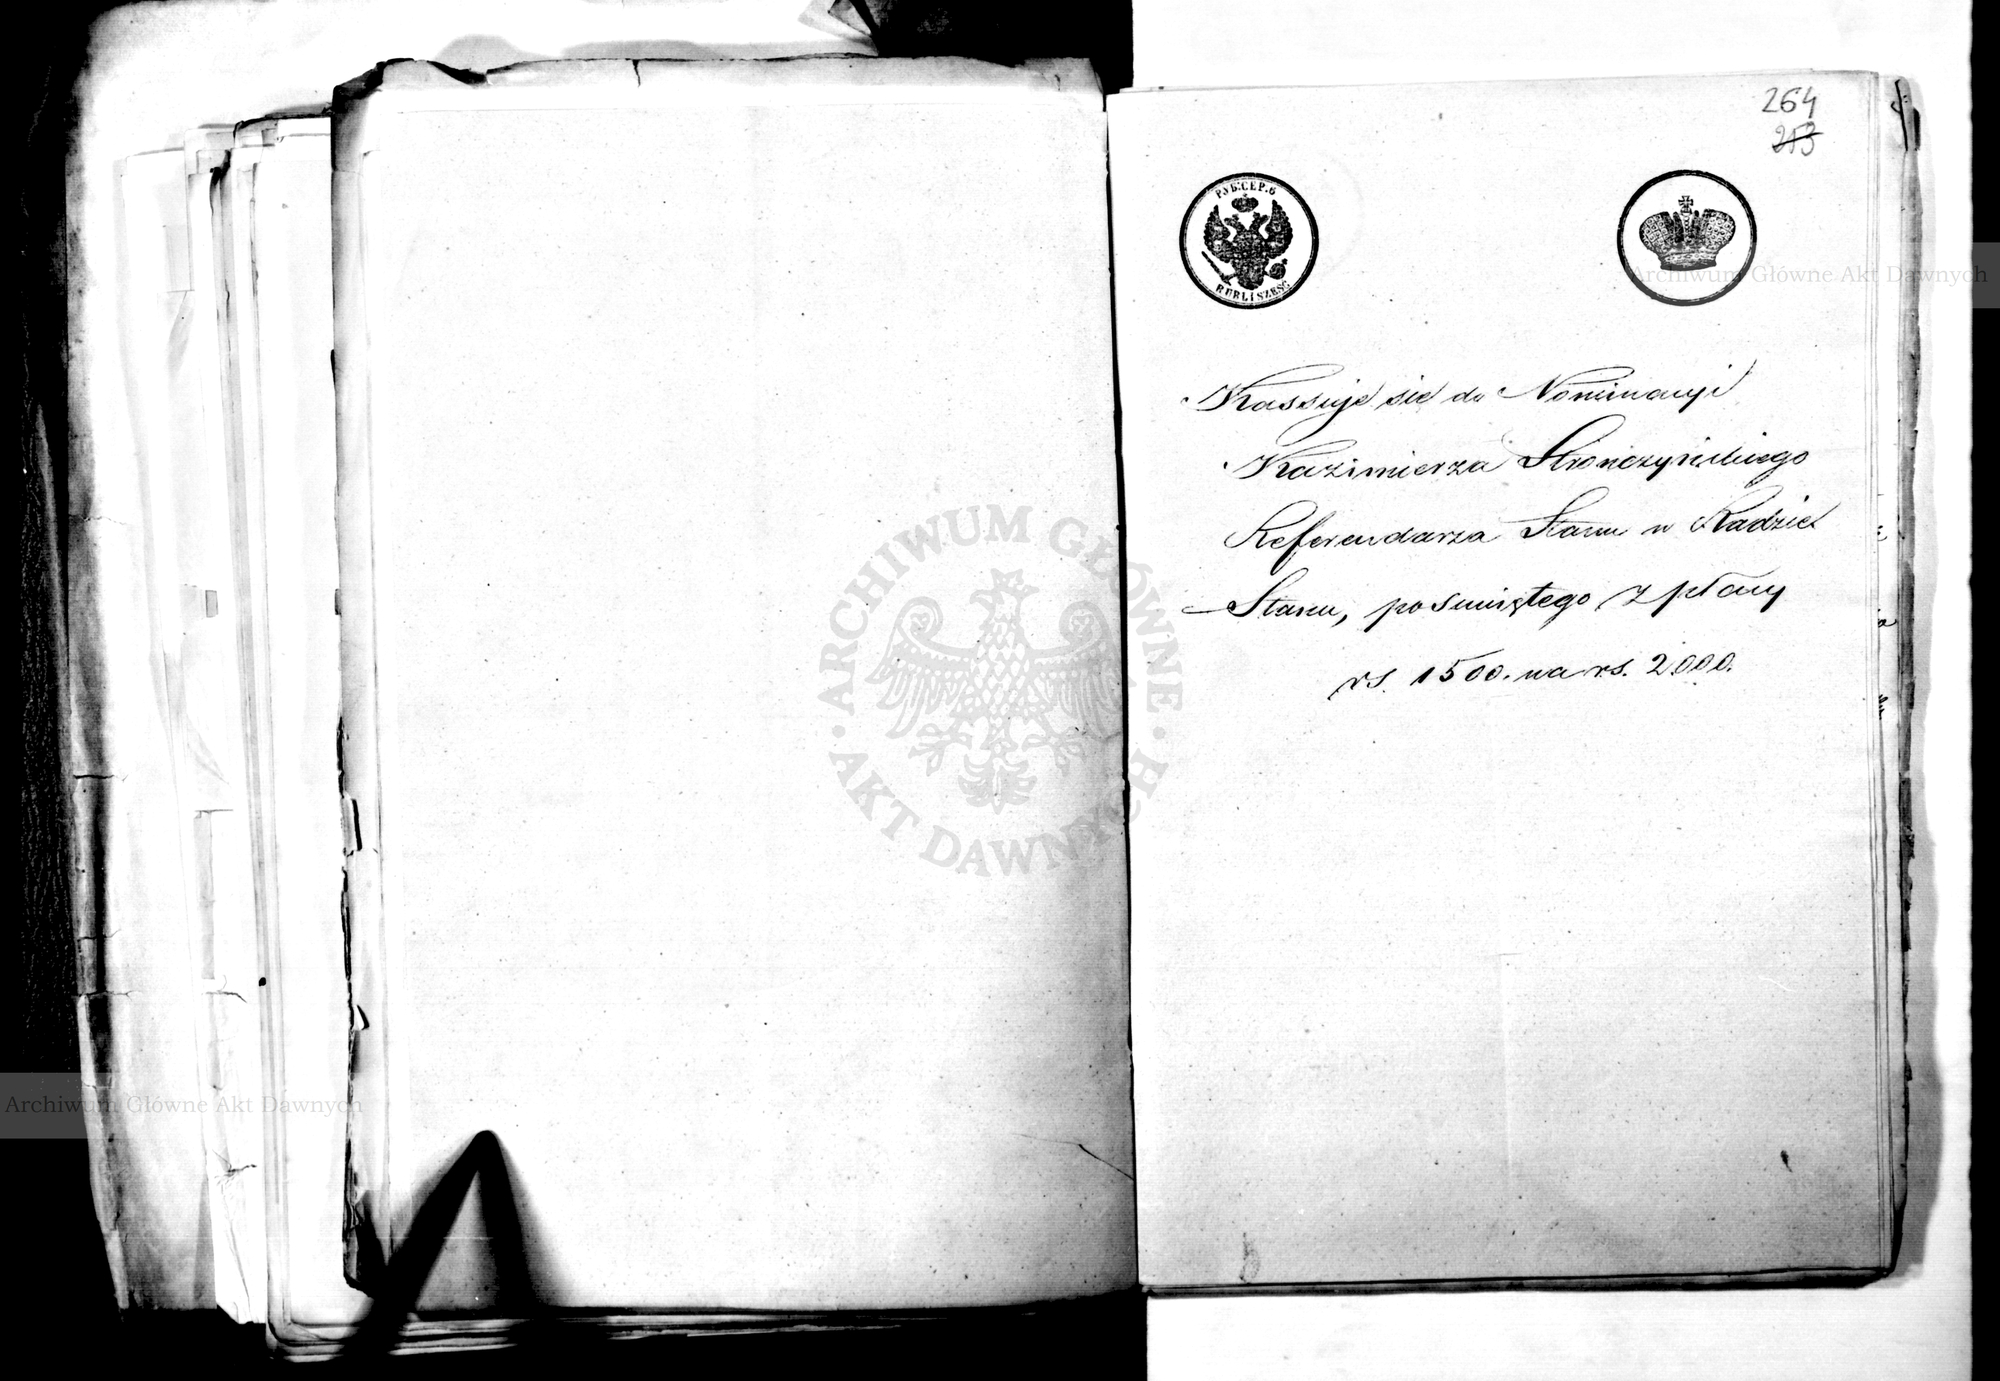 264
213
РУБ:СЕР.6
RUBLI SZEŚĆ
Kassuje sie do Nominacyi
Kazimierza Stronczyńskiego
Referendarza Stanu w Radzie
Stanu, posuniętego z płacy
rs. 1500. na rs. 2000.
Archiwum Główne Akt Dawnych
ARCHIWUM GŁÓWNE · AKT DAWNYCH ·
Archiwum Główne Akt Dawnych